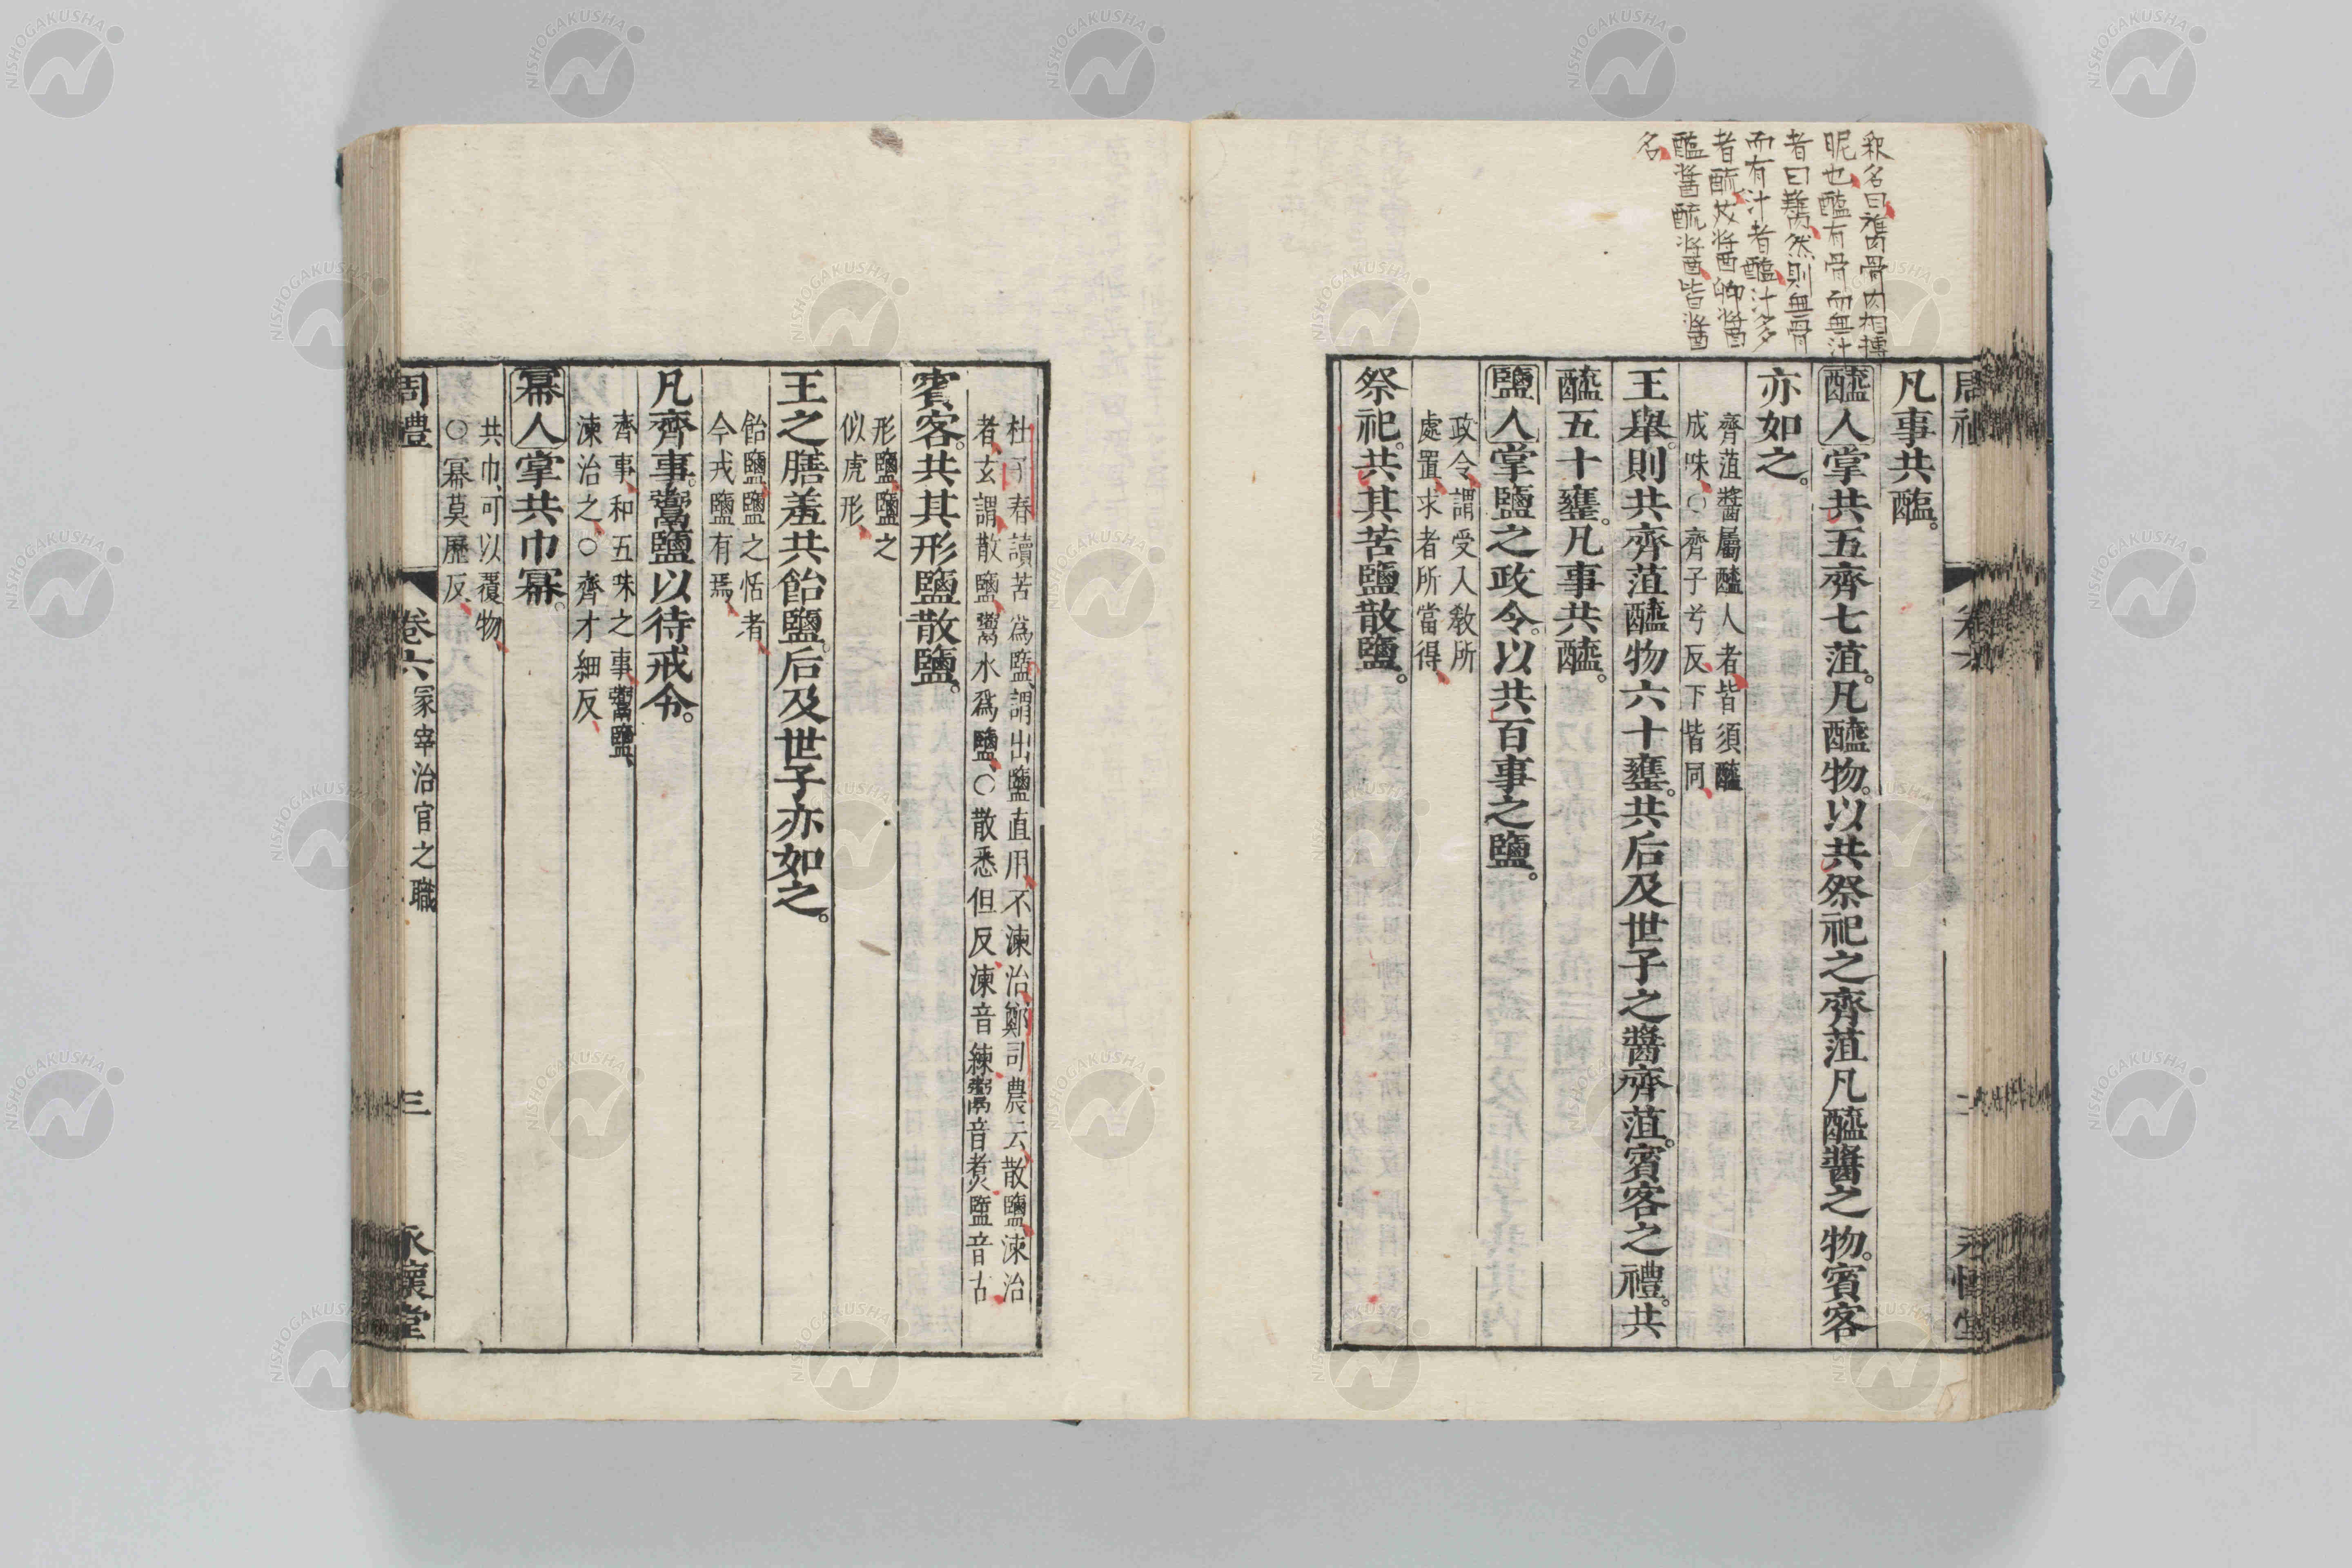 釈名曰臡骨肉相搏
昵也醢有骨而無汁
者曰臡然則無骨
而有汁者醢汁多
者醯
醢醬醯醬皆醬
名
凡事共醢。
醯人掌共五齊七菹。凡醯物。以共祭祀之齊菹凡醯醬之物。賓客
亦如之。
齊菹醬屬醯人者皆須醯
成味○齊子兮反下皆同
王舉。則共齊菹醯物六十罋。共后及世子之醬齊菹。賓客之禮。共
醯五十罋。凡事共醯。
鹽人掌鹽之政令。以共百事之鹽。
政令謂受入教所
處置求者所當得
祭祀。共其苦鹽散鹽。
杜子春讀苦爲盬謂出鹽直用不湅治鄭司農云散鹽湅治
者玄謂散鹽鬻水爲鹽○散悉但反湅音練鬻音煑盬音古
賓客。共其形鹽散鹽。
形鹽鹽之
似虎形
王之膳羞共飴鹽。后及世子亦如之。
飴鹽鹽之恬者
今戎鹽有焉
凡齊事。鬻鹽以待戒令。
齊事和五味之事鬻鹽
湅治之○齊才細反
冪人掌共巾冪。
共巾可以覆物
○冪莫歷反
周禮 卷六 冢宰治官之職 三 永懷堂